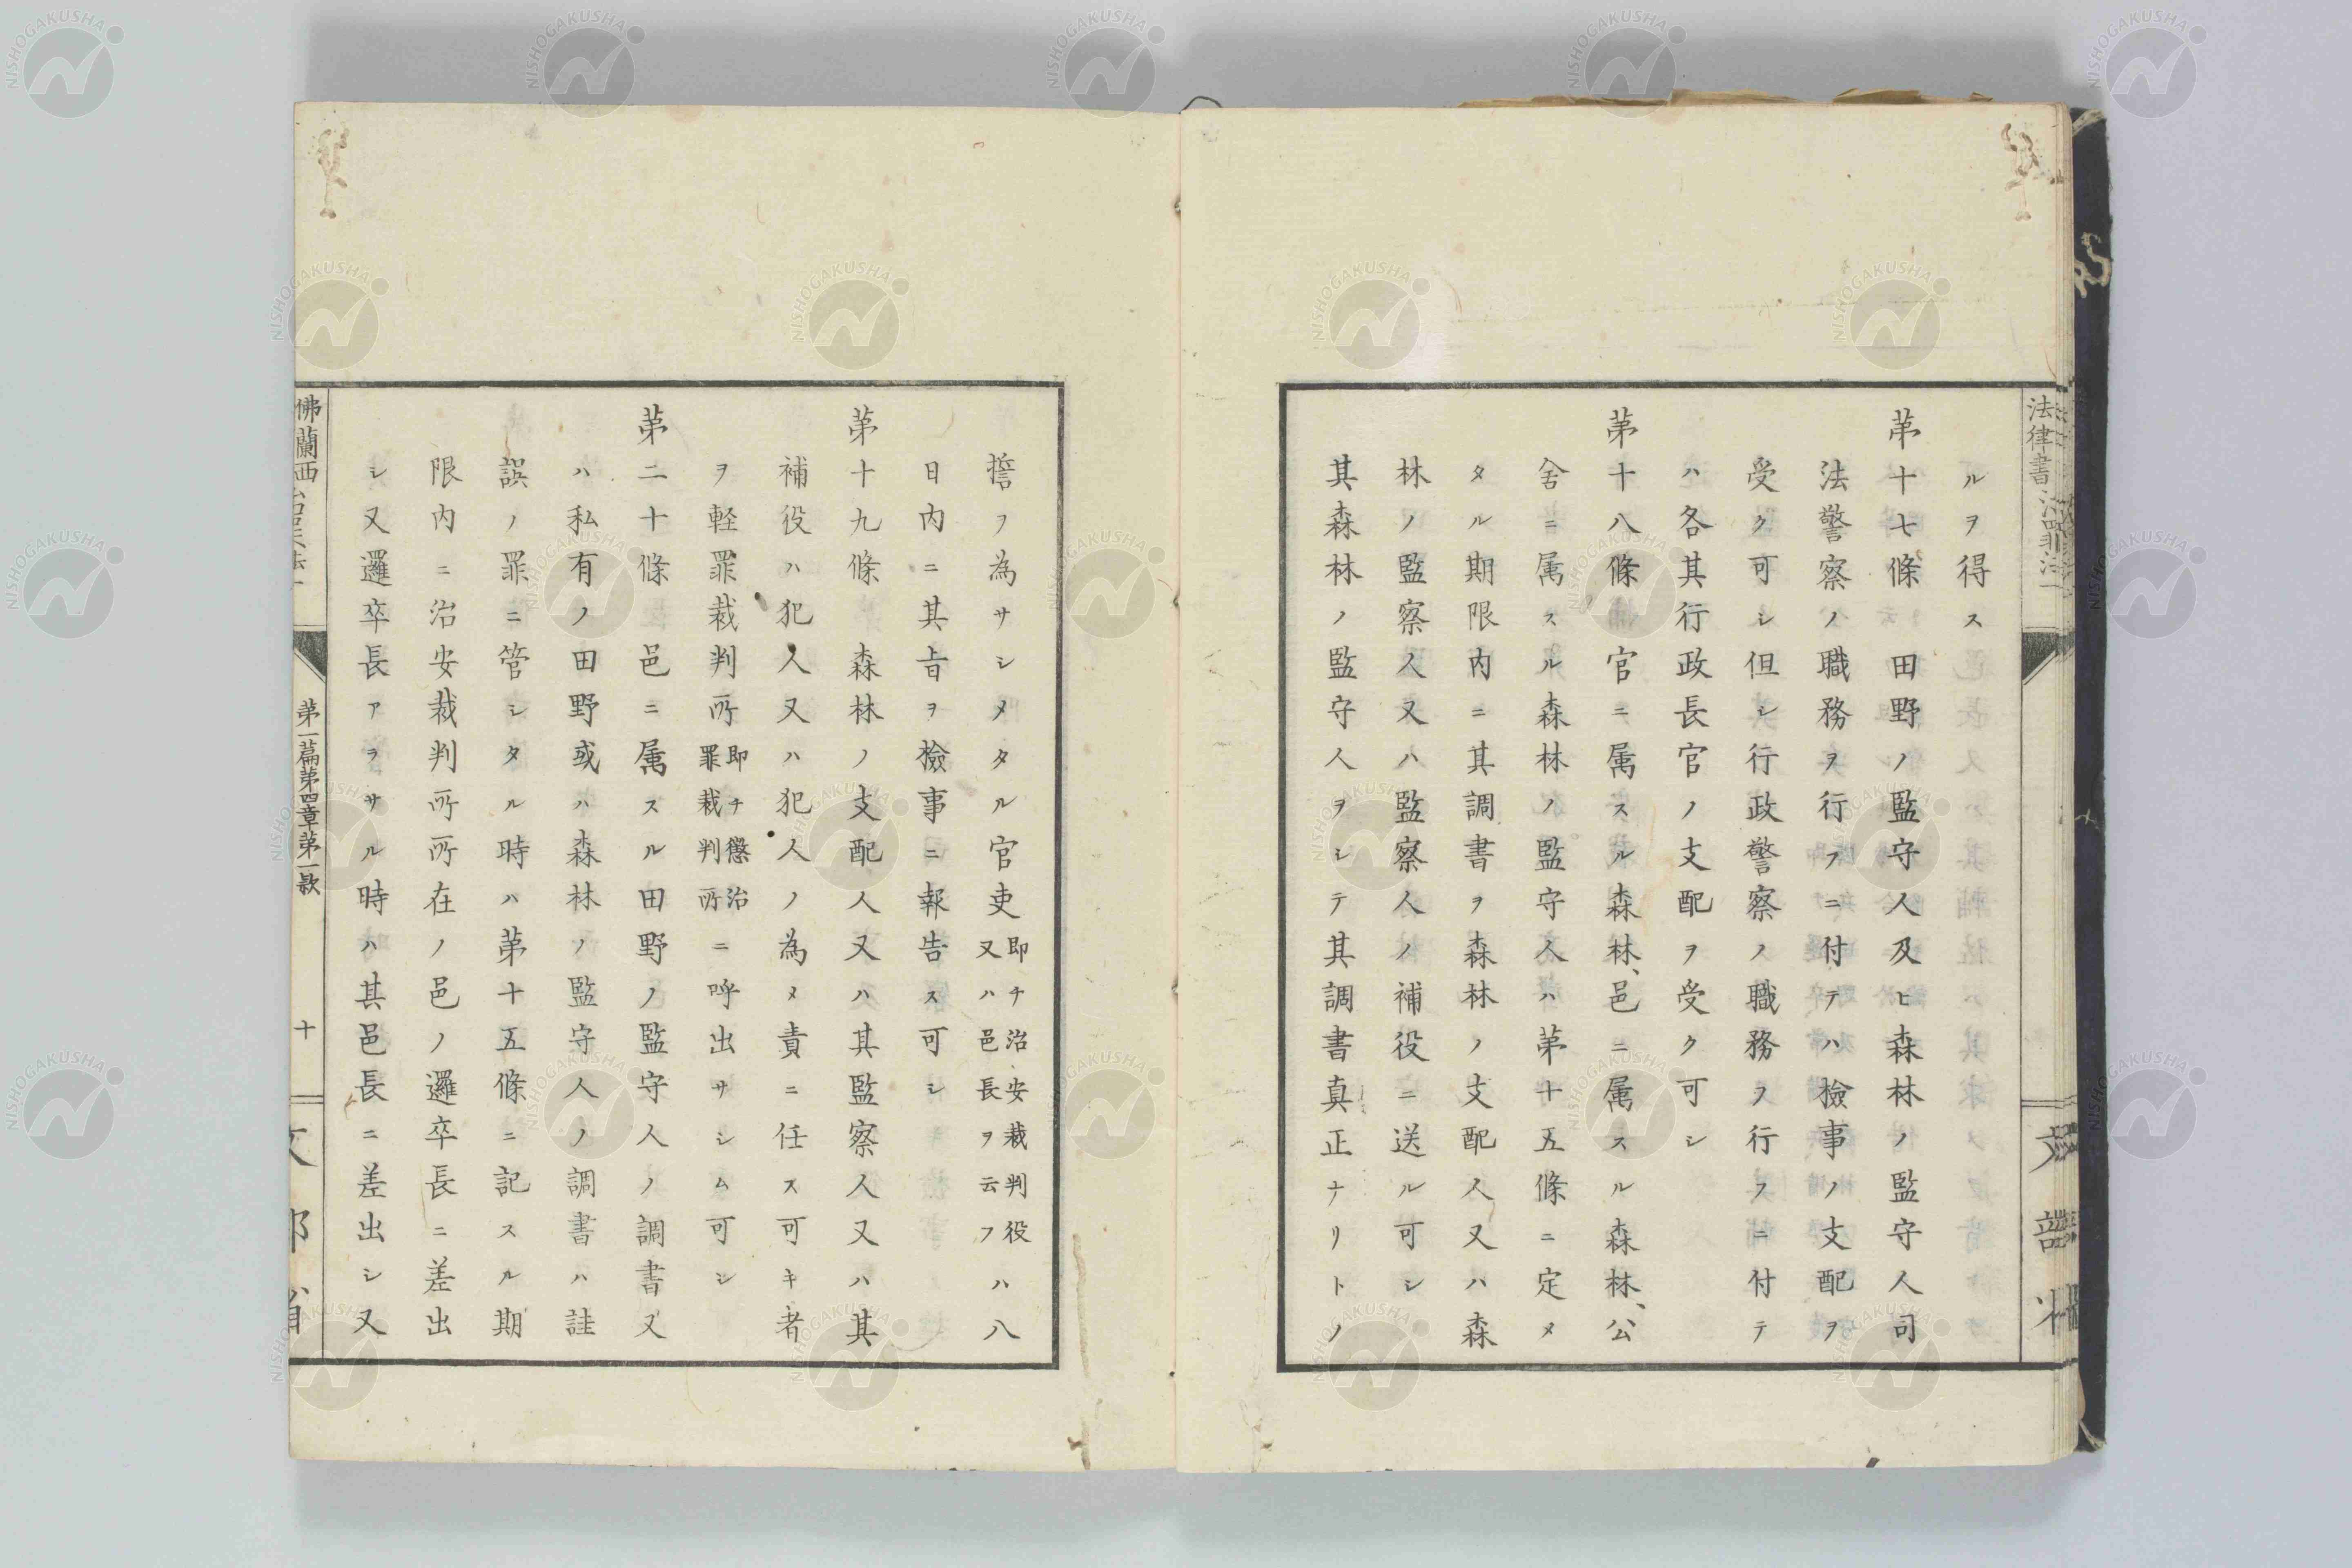 ルヲ得ス
第十七條 田野ノ監守人及ヒ森林ノ監守人司
法警察ノ職務ヲ行フニ付テハ檢事ノ支配ヲ
受ク可シ但シ行政警察ノ職務ヲ行フニ付テ
ハ各其行政長官ノ支配ヲ受ク可シ
第十八條 官ニ属スル森林、邑ニ属スル森林、公
舍ニ属スル森林ノ監守人ハ第十五條ニ定メ
タル期限内ニ其調書ヲ森林ノ支配人又ハ森
林ノ監察人又ハ監察人ノ補役ニ送ル可シ
其森林ノ監守人ヲシテ其調書真正ナリトノ
誓フ為サシメタル官吏即チ治安裁判役又ハ邑長ヲ云フハ八
日内ニ其旨ヲ檢事ニ報告ス可シ
第十九條 森林ノ支配人又ハ其監察人又ハ其
補役ハ犯人又ハ犯人ノ為メ責ニ任ス可キ者
ヲ軽罪裁判所即チ懲治罪裁判所ニ呼出サシム可シ
第二十條 邑ニ属スル田野ノ監守人ノ調書又
ハ私有ノ田野或ハ森林ノ監守人ノ調書ハ註
誤ノ罪ニ管シタル時ハ第十五條ニ記スル期
限内ニ治安裁判所所在ノ邑ノ邏卒長ニ差出
シ又邏卒長アラサル時ハ其邑長ニ差出シ又
法律書
佛蘭西
第一篇第四章第一款
十
文部省
NISHOGAKUSHA